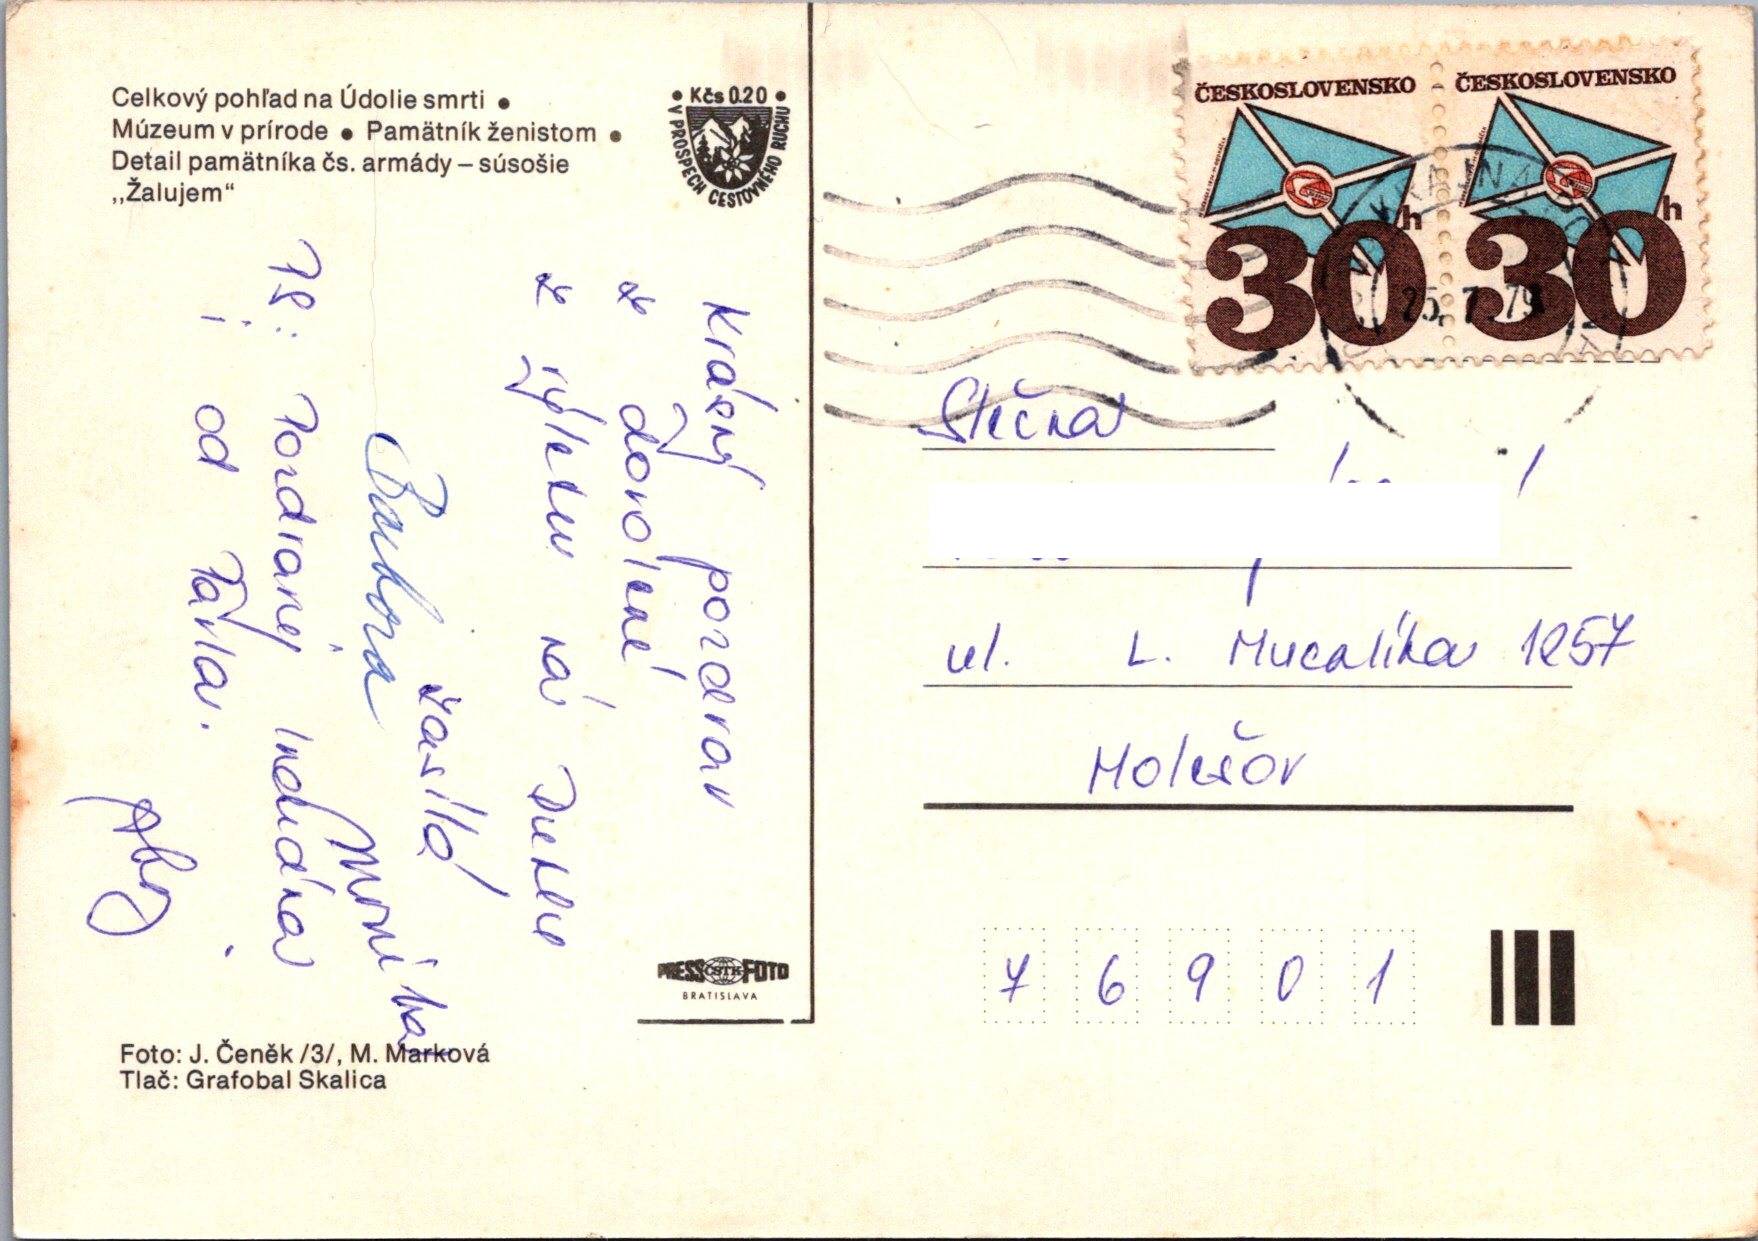 Celkový pohľad na Údolie smrti •
Múzeum v prírode • Pamätník ženistom •
Detail pamätníka čs. armády – súsošie
„Žalujem“
• Kčs 0.20 •
V PROSPECH CESTOVNÉHO RUCHU
Krásný pozdrav
z dovolené
z výletu na Duklu
zasílá
Mirka
PS: Pozdravuj Indiána
i od Pavla.
PRESS ČSTK FOTO
BRATISLAVA
Foto: J. Čeněk /3/, M. Marková
Tlač: Grafobal Skalica
ČESKOSLOVENSKO
30 h
ČESKOSLOVENSKO
30 h
25. 7. 79
Slečna
ul. L. Mucalíka 1257
Holešov
7 6 9 0 1